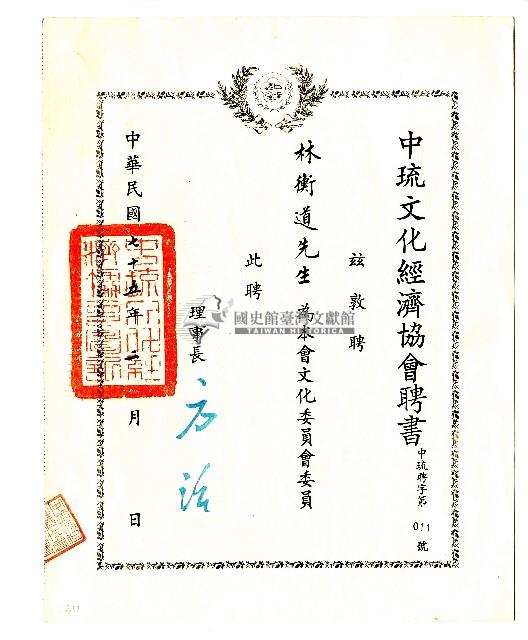 中琉文化經濟協會聘書
中琉聘字第
011
號
茲敦聘
林衡道先生為本會文化委員會委員
此聘
理事長
方治
中華民國七十五年一月 日
國史館臺灣文獻館
TAIWAN HISTORICA